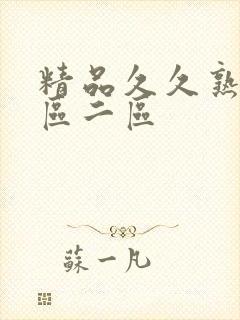 精品久久熟
區二區
蘇一凡